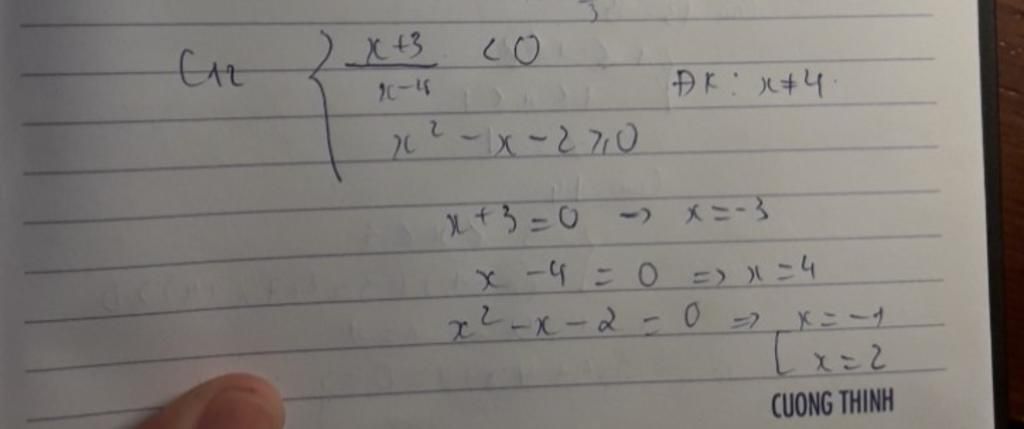 C12 { x+3 / x-4 < 0
ĐK: x ≠ 4.
x² - x - 2 ≥ 0
x + 3 = 0 → x = -3
x - 4 = 0 => x = 4
x² - x - 2 = 0 => [ x = -1
x = 2
CUONG THINH